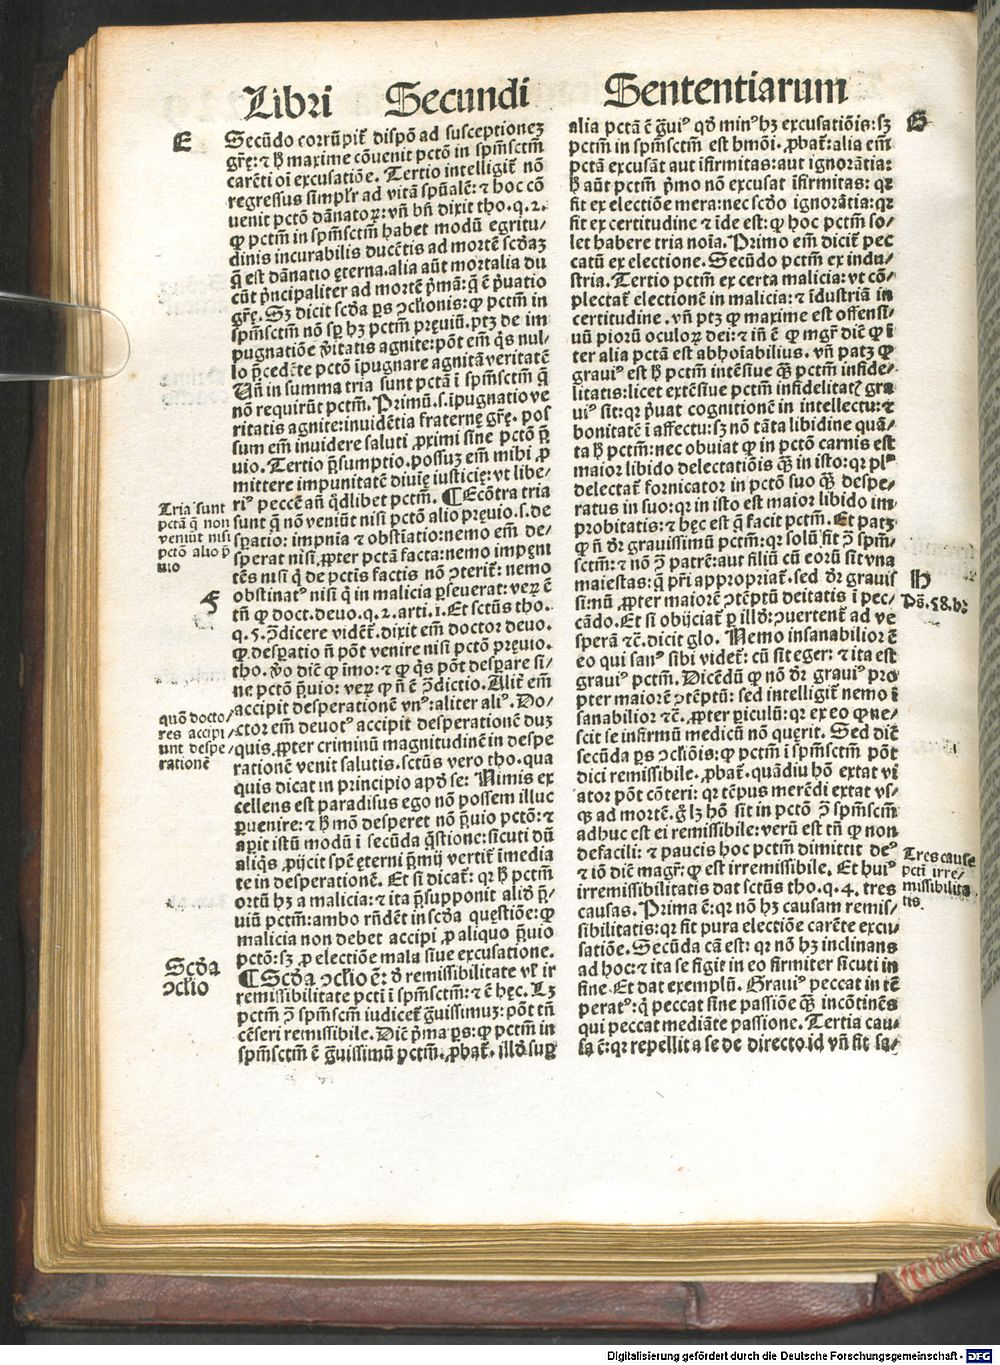 Libri Secundi Sententiarum
E
Secūdo corrūpit᷑ dispō ad susceptionez
gr̄ę: ⁊ ꝧ maxime cōuenit pctō in spm̄sctm̄
carēti oi excusatiōe. Tertio intelligit᷑ nō
regressus simplr̄ ad vitā spūalē: ⁊ hoc cō
uenit pctō dānatoꝝ: vn̄ bn̄ dixit tho. q. 2.
ꝙ pctm̄ in spm̄sctm̄ habet modū egritu⸗
dinis incurabilis ducētis ad mortē scd̄az
q̄ est dānatio ęterna. alia aūt mortalia du
cūt pͥncipaliter ad mortē pͥmā: q̄ ē pͥuatio
gr̄ę. Sꝫ dicit scd̄a ꝑs ↄclionis: ꝙ pctm̄ in
spm̄sctm̄ nō sꝑ hꝫ pctm̄ pręuiū. ptꝫ de im
pugnatiōe v̄itatis agnite: pōt em̄ qͥs nul⸗
lo p̄cedēte pctō īpugnare agnitā veritatē
Un̄ in summa tria sunt pctā ī spm̄sctm̄ q̄
nō requirūt pctm̄. Primū. s. īpugnatio ve
ritatis agnite: inuidētia fraternę gr̄ę. pos
sum em̄ inuidere saluti ꝓximi sine pctō p̄
uio. Tertio p̄sumptio. possuꝫ em̄ mihi ꝓ
mittere impunitatē diuię iusticię: vt libe⸗
riꝰ peccē añ qd̄libet pctm̄. ¶ Ecōtra tria
sunt q̄ nō veniūt nisi pctō alio pręuio. s. de
sꝑatio: impnīa ⁊ obstiatio: nemo em̄ de⸗
sperat nisi ꝓpter pctā facta: nemo impęni
tēs nisi qͥ de pctis factis nō ↄterit᷑: nemo
obstinatꝰ nisi qͥ in malicia ꝑseuerat: veꝝ ē
tn̄ ꝙ doct. deuo. q. 2. arti. i. Et sctūs tho.
q. 5. ↄ̄dicere vidēt᷑. dixit em̄ doctor deuo.
ꝙ desꝑatio n̄ pōt venire nisi pctō pręuio.
tho. v̄o diē ꝙ imo: ⁊ ꝙ qͥs pōt desꝑare si⸗
ne pctō p̄uio: veꝝ ꝙ n̄ ē ↄ̄dictio. Alit᷑ em̄
accipit desperationē vnꝰ: aliter aliꝰ. Do⸗
ctor em̄ deuotꝰ accipit desperationē duꝫ
quis ꝓpter criminū magnitudinē in despe
rationē venit salutis. sctūs vero tho. qua
quis dicat in principio apd̄ se: Nimis ex
cellens est paradisus ego nō possem illuc
ꝑuenire: ⁊ ꝧ mō desperet nō p̄uio pctō: ⁊
aꝑit istū modū ī secūda q̄stione: sicuti dū
aliqͥs ꝓijcit spē ęterni p̄mij vertit᷑ īmedia
te in desperationē. Et si dicat᷑: qꝛ ꝧ pctm̄
ortū hꝫ a malicia: ⁊ ita p̄supponit aliqd̄ p̄⸗
uiū pctm̄: ambo rn̄dent in scd̄a quęstiōe: ꝙ
malicia non debet accipi ꝓ aliquo p̄uio
pctō: sꝫ ꝓ electiōe mala siue excusatione.
¶ Scd̄a ↄclio ē: d̄ remissibilitate vl̓ ir
remissibilitate pcti ī spm̄sctm̄: ⁊ ē hęc. Lꝫ
pctm̄ ↄ̄ spm̄scm̄ iudicet᷑ g̓uissimuꝫ: pōt tn̄
cēseri remissibile. Diē pͥma ꝑs: ꝙ pctm̄ in
spm̄sctm̄ ē g̓uissimū pctm̄. ꝓbat᷑. illd̄ suꝑ
Tria sunt
pctā q̄ non
veniūt nisi
pctō alio p̄
uio
F
quō docto⸗
res accipi⸗
unt despe⸗
rationē
Scd̄a
ↄclio
alia pctā ē g̓uiꝰ qd̄ minꝰ hꝫ excusatiōis: sꝫ
pctm̄ in spm̄sctm̄ est hmōi. ꝓbat᷑: alia em̄
pctā excusāt aut īfirmitas: aut ignorātia:
ꝧ aūt pctm̄ pͥmo nō excusat īfirmitas: qꝛ
fit ex electiōe mera: nec scd̄o ignorātia: qꝛ
fit ex certitudine ⁊ īde est: ꝙ hoc pctm̄ so⸗
let habere tria noīa. Primo em̄ dicit᷑ pec
catū ex electione. Secūdo pctm̄ ex indu⸗
stria. Tertio pctm̄ ex certa malicia: vt cō⸗
plectat᷑ electionē in malicia: ⁊ īdustriā in
certitudine. vn̄ ptꝫ ꝙ maxime est offensi⸗
uū piorū oculoꝝ dei: ⁊ in̄ ē ꝙ mgr̄ diē ꝙ ī
ter alia pctā est abhoīabilius. vn̄ patꝫ ꝙ
grauiꝰ est ꝧ pctm̄ intēsiue qͣꝫ pctm̄ infide⸗
litatis: licet extēsiue pctm̄ infidelitatꝭ gra
uiꝰ sit: qꝛ pͥuat cognitionē in intellectu: ⁊
bonitatē ī affectu: sꝫ nō tāta libidine quā⸗
ta ꝧ pctm̄: nec obuiat ꝙ in pctō carnis est
maior libido delectatiōis qͣꝫ in isto: qꝛ plꝰ
delectat᷑ fornicator in pctō suo qͣꝫ despe⸗
ratus in suo: qꝛ in isto est maior libido im
probitatis: ⁊ hęc est q̄ facit pctm̄. Et patꝫ
ꝙ n̄ dr̄ grauissimū pctm̄: qꝛ solū fit ↄ̄ spm̄⸗
sctm̄: ⁊ nō ↄ̄ patrē: aut filiū cū eorū sit vna
maiestas: q̄ pr̄i appropriat᷑. sed dr̄ grauis
si mū ꝓpter maiorē ↄtēptū deitatis ī pec⸗
cādo. Et si obijciat᷑ ꝑ illd̄: ↄuertent᷑ ad ve
sperā ⁊c̄. dicit glo. Nemo insanabilior ē
eo qui sanꝰ sibi videt᷑: cū sit eger: ⁊ ita est
grauiꝰ pctm̄. Dicēdū ꝙ nō dr̄ grauiꝰ pro
pter maiorē ↄtēptū: sed intelligit᷑ nemo ī
sanabilior ⁊c̄. ꝓpter ꝑiculū: qꝛ ex eo ꝙ ne⸗
scit se infirmū medicū nō quęrit. Sed diē
secūda ꝑs ↄcl̓iōis: ꝙ pctm̄ ī spm̄sctm̄ pōt
dici remissibile. ꝓbat᷑. quādiu hō extat vi
ator pōt cōteri: qꝛ tēpus merēdi extat vs⸗
qꝫ ad mortē. g̊ lꝫ hō sit in pctō ↄ̄ spm̄scm̄
adhuc est ei remissibile: verū est tn̄ ꝙ non
defacili: ⁊ paucis hoc pctm̄ dimittit deꝰ
⁊ iō diē magr̄: ꝙ est irremissibile. Et huiꝰ
irremissibilitatis dat sctūs tho. q. 4. tres
causas. Prima ē: qꝛ nō hꝫ causam remis⸗
sibilitatis: qꝛ fit pura electiōe carēte excu⸗
satiōe. Secūda cā est: qꝛ nō hꝫ inclinans
ad hoc: ⁊ ita se figit in eo firmiter sicuti in
fine. Et dat exemplū. Grauiꝰ peccat in tē
peratꝰ: qͥ peccat sine passiōe qͣꝫ incōtinēs
qui peccat mediāte passione. Tertia cau⸗
sa ē: qꝛ repellit a se de directo id vn̄ fit sa⸗
G
H
Ps̄. 58. b:
Tres cause
pcti irre⸗
missibilita
tis.
Digitalisierung gefördert durch die Deutsche Forschungsgemeinschaft - DFG